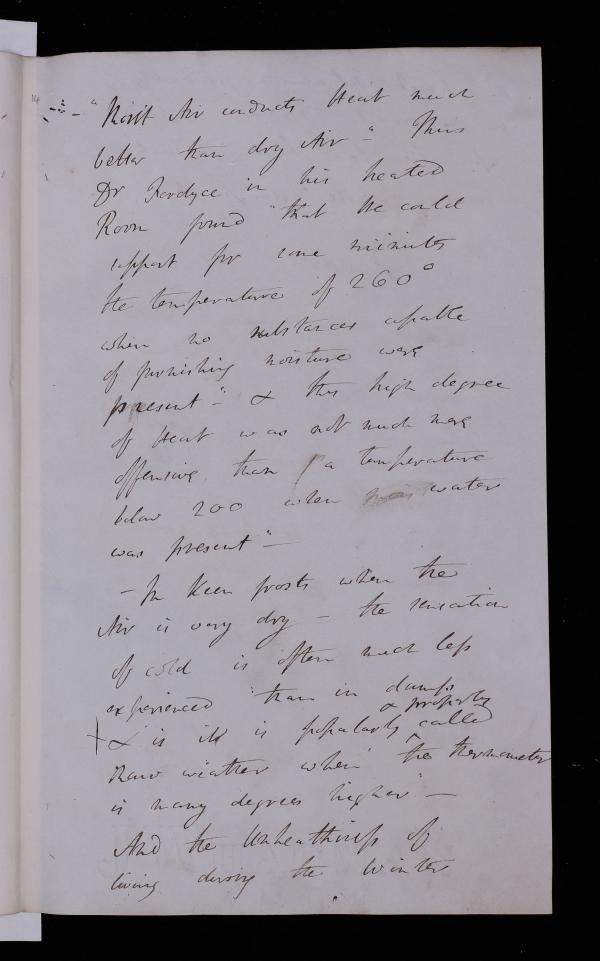 "Moist Air conducts Heat much
better than dry Air" Thus
Dr Fordyce in his heated
Room found "that He could
support for some minutes
the temperature of 260°
when no substances capable
of furnishing moisture were
present" - & this high degree
of Heat was not much more
offensive than a temperature
below 200 when water
was present" -
- In Keen frosts when the
Air is very dry - the sensation
of cold is often much less
experienced "than in damp,
& properly
& is it is popularly called
Raw weather when the thermometer
is many degrees higher" -
And the Unhealthiness of
living during the Winter